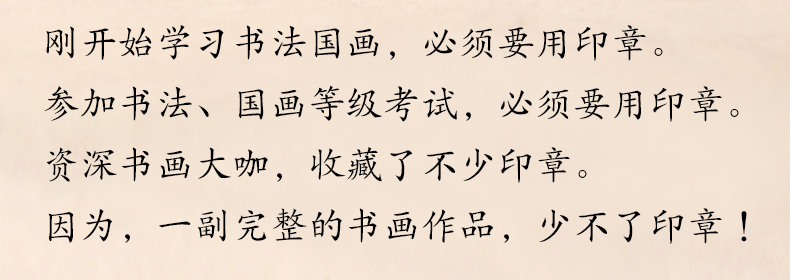 刚开始学习书法国画，必须要用印章。
参加书法、国画等级考试，必须要用印章。
资深书画大咖，收藏了不少印章。
因为，一副完整的书画作品，少不了印章！